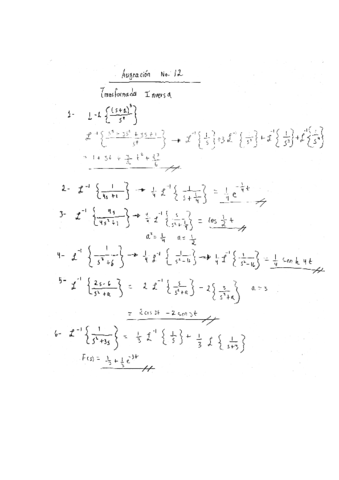 Asignación No. 12
Transformada Inversa
1- L⁻¹ {(s+1)³/s⁴}
L⁻¹ {s³+3s²+3s+1/s⁴} → L⁻¹{1/s}+3L⁻¹{1/s²}+L⁻¹{1/s³}+L⁻¹{1/s⁴}
= 1 + 3t + 3/2 t² + t³/6
2- L⁻¹ {1/4s+1} → 1/4 L⁻¹ {1/s+1/4} = 1/4 e^-1/4t
3- L⁻¹ {4s/4s²+1} → 1/4 L⁻¹ {s/s²+1/4} = cos 1/2 t
a²=1/4 a=1/2
4- L⁻¹ {1/s²-16} → 1/4 L⁻¹ {1/s²-16} → 1/4 L⁻¹ {4/s²-16} = 1/4 senh 4t
5- L⁻¹ {2s-6/s²+9} = 2 L⁻¹ {s/s²+9} - 2 {3/s²+9} a=3
= 2cos3t - 2sen3t
6- L⁻¹ {1/s²+3s} = 1/3 L⁻¹ {1/s} + 1/3 L {1/s+3}
F(s) = 1/3 + 1/3 e^-3t